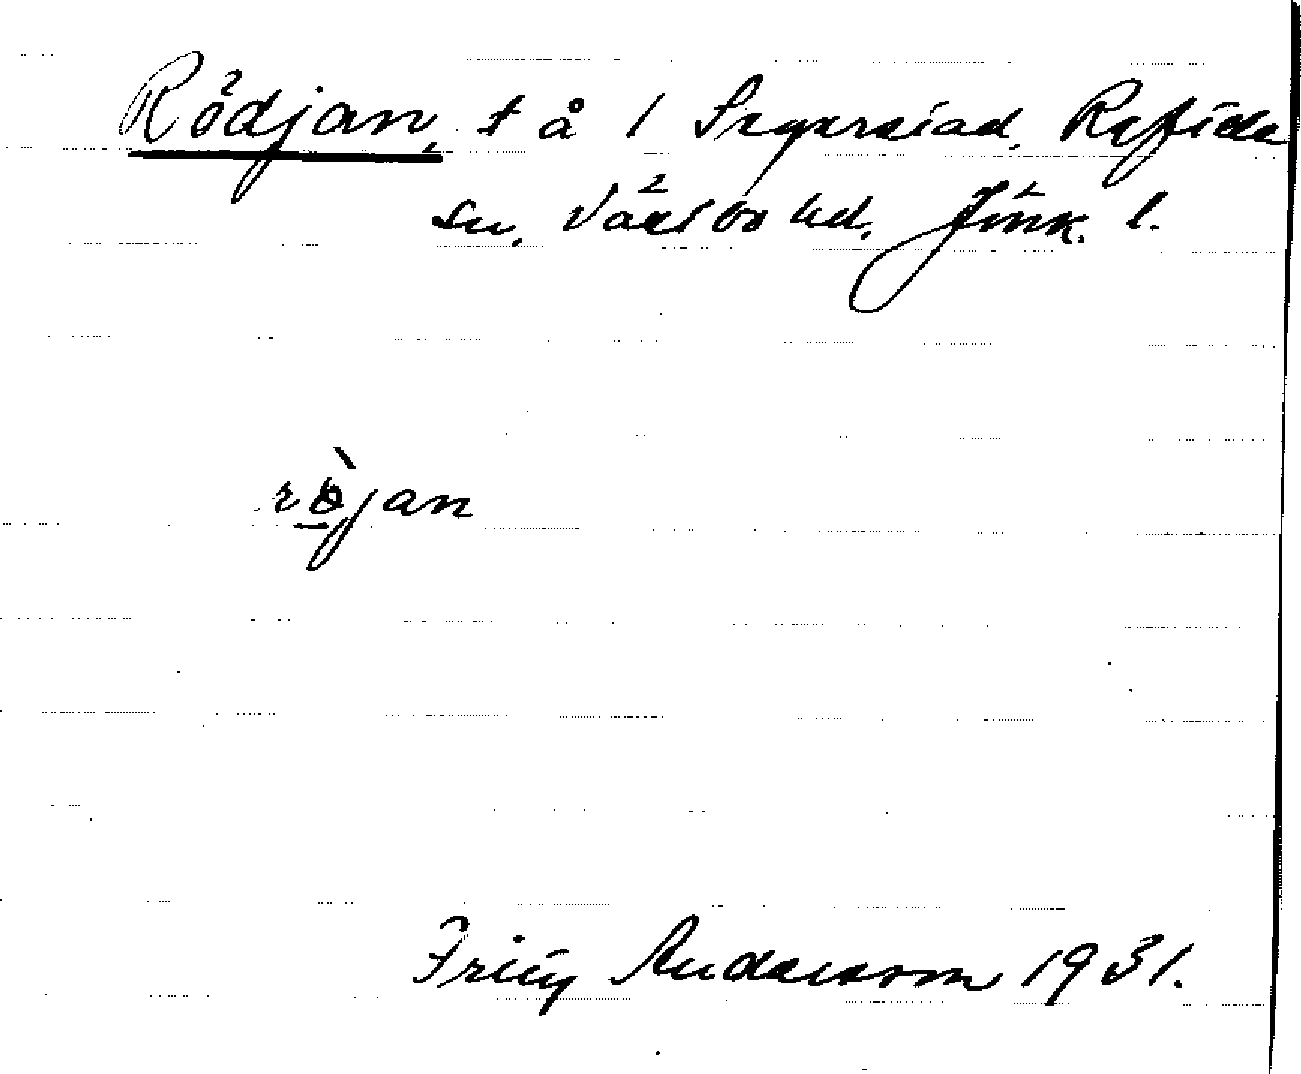 Rödjan, t å 1 Segerstad, Reftele
sn. Västbo hd. Jönk. l.
rö̀jan
Frity Andersson 1931.